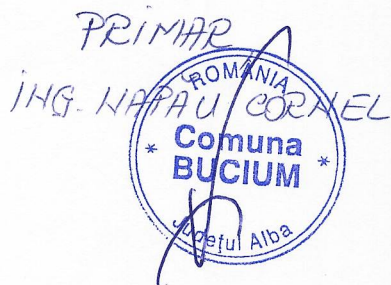 PRIMAR
ING. NAPĂU CORNEL
ROMÂNIA
* Comuna *
BUCIUM
Județul Alba